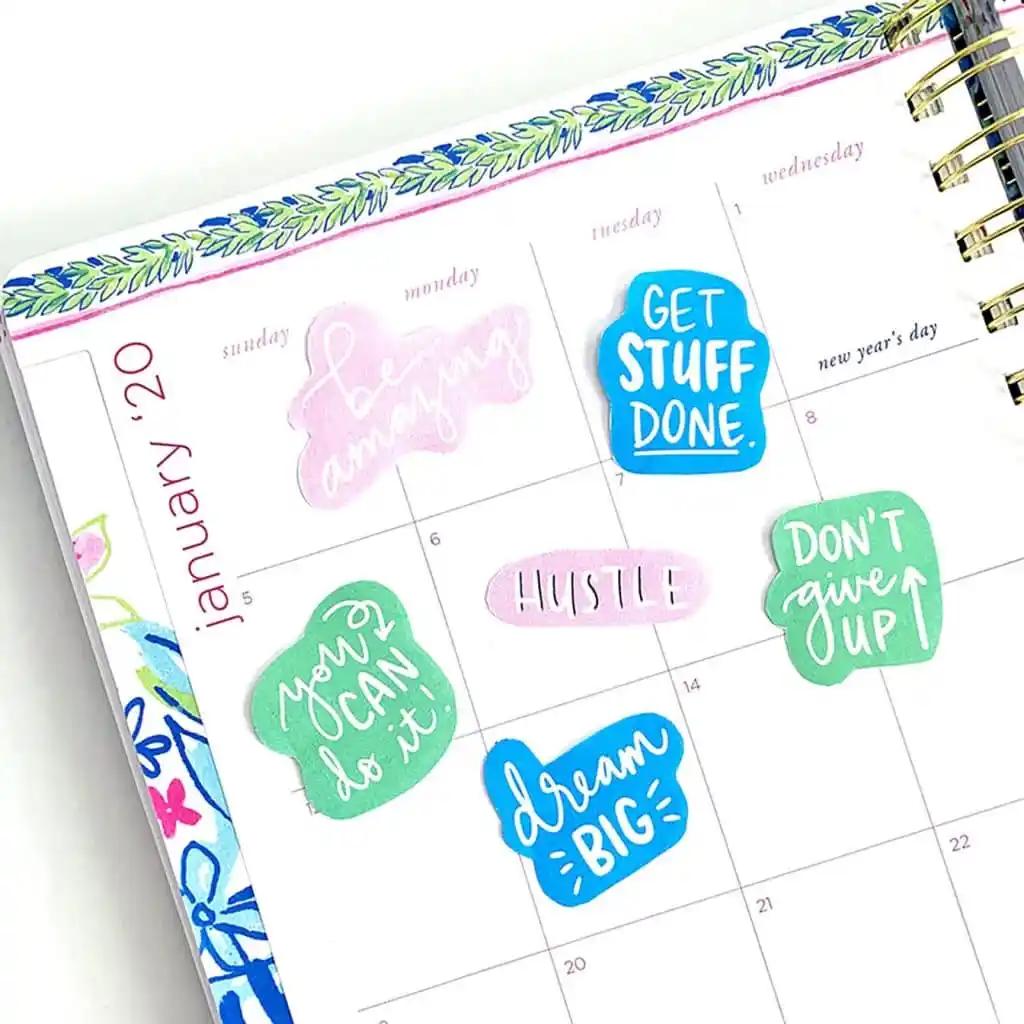 sunday
monday
tuesday
wednesday
january '20
be
amazing
GET
STUFF
DONE.
1
new year's day
5
6
7
8
you
CAN
do it!
HUSTLE
DON'T
give
UP
14
dream
BIG
20
21
22